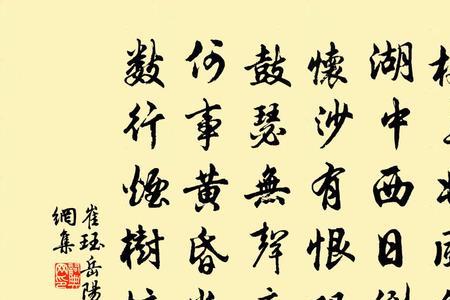 湖中西日
懷沙有恨
鼓瑟無聲
何事黃昏
數行煙樹
崔珏岳陽
網集